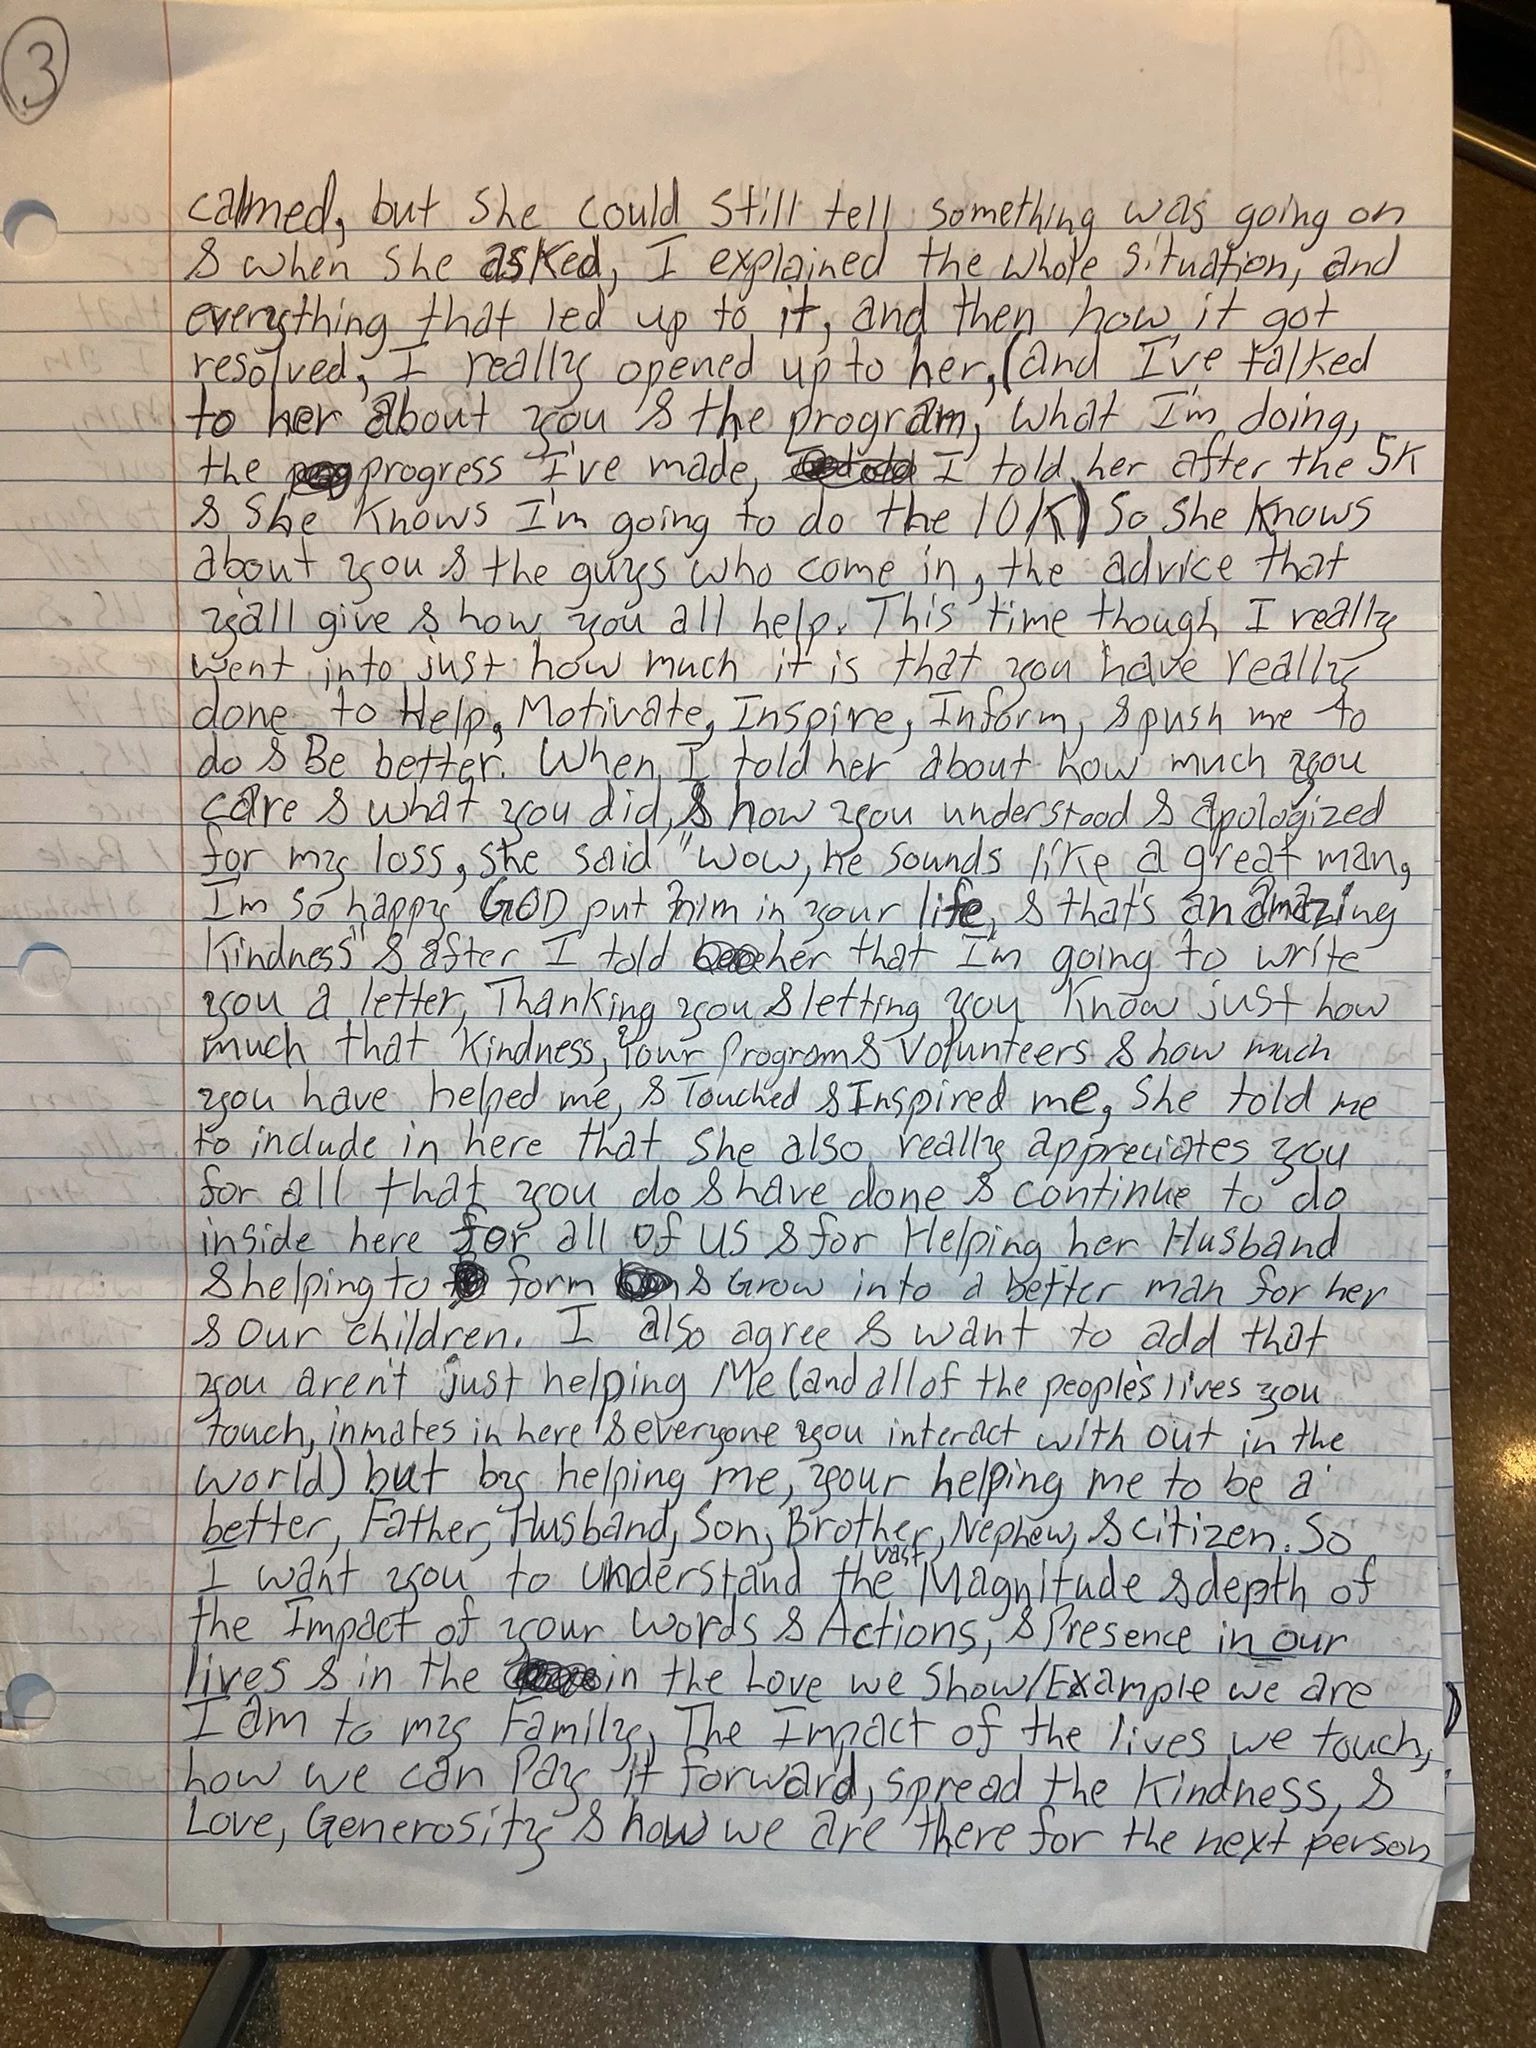 3
calmed, but she could still tell something was going on
& when she asked, I explained the whole situation, and
everything that led up to it, and then how it got
resolved, I really opened up to her, (and I've talked
to her about you & the program, what I'm doing,
the progress I've made, I told her after the 5K
& she knows I'm going to do the 10K) So she knows
about you & the guys who come in, the advice that
y'all give & how you all help. This time though I really
went into just how much it is that you have really
done to Help, Motivate, Inspire, Inform, & push me to
do & Be better. When I told her about how much you
care & what you did, & how you understood & apologized
for my loss, she said "wow, he sounds like a great man,
I'm so happy GOD put him in your life, & that's an amazing
Kindness" & after I told her that I'm going to write
you a letter, Thanking you & letting you know just how
much that Kindness, Your Program & Volunteers & how much
you have helped me, & Touched & Inspired me, She told me
to include in here that she also really appreciates you
for all that you do & have done & continue to do
inside here for all of us & for Helping her Husband
& helping to form & Grow into a better man for her
& our children. I also agree & want to add that
you aren't just helping Me (and all of the people's lives you
touch, inmates in here & everyone you interact with out in the
world) but by helping me, your helping me to be a
better, Father, Husband, Son, Brother, Nephew, & citizen. So
I want you to understand the vast Magnitude & depth of
the Impact of your words & Actions, & Presence in our
lives & in the in the Love we Show/Example we are
I am to my Family, The Impact of the lives we touch,
how we can Pay it forward, spread the Kindness, &
Love, Generosity & how we are there for the next person